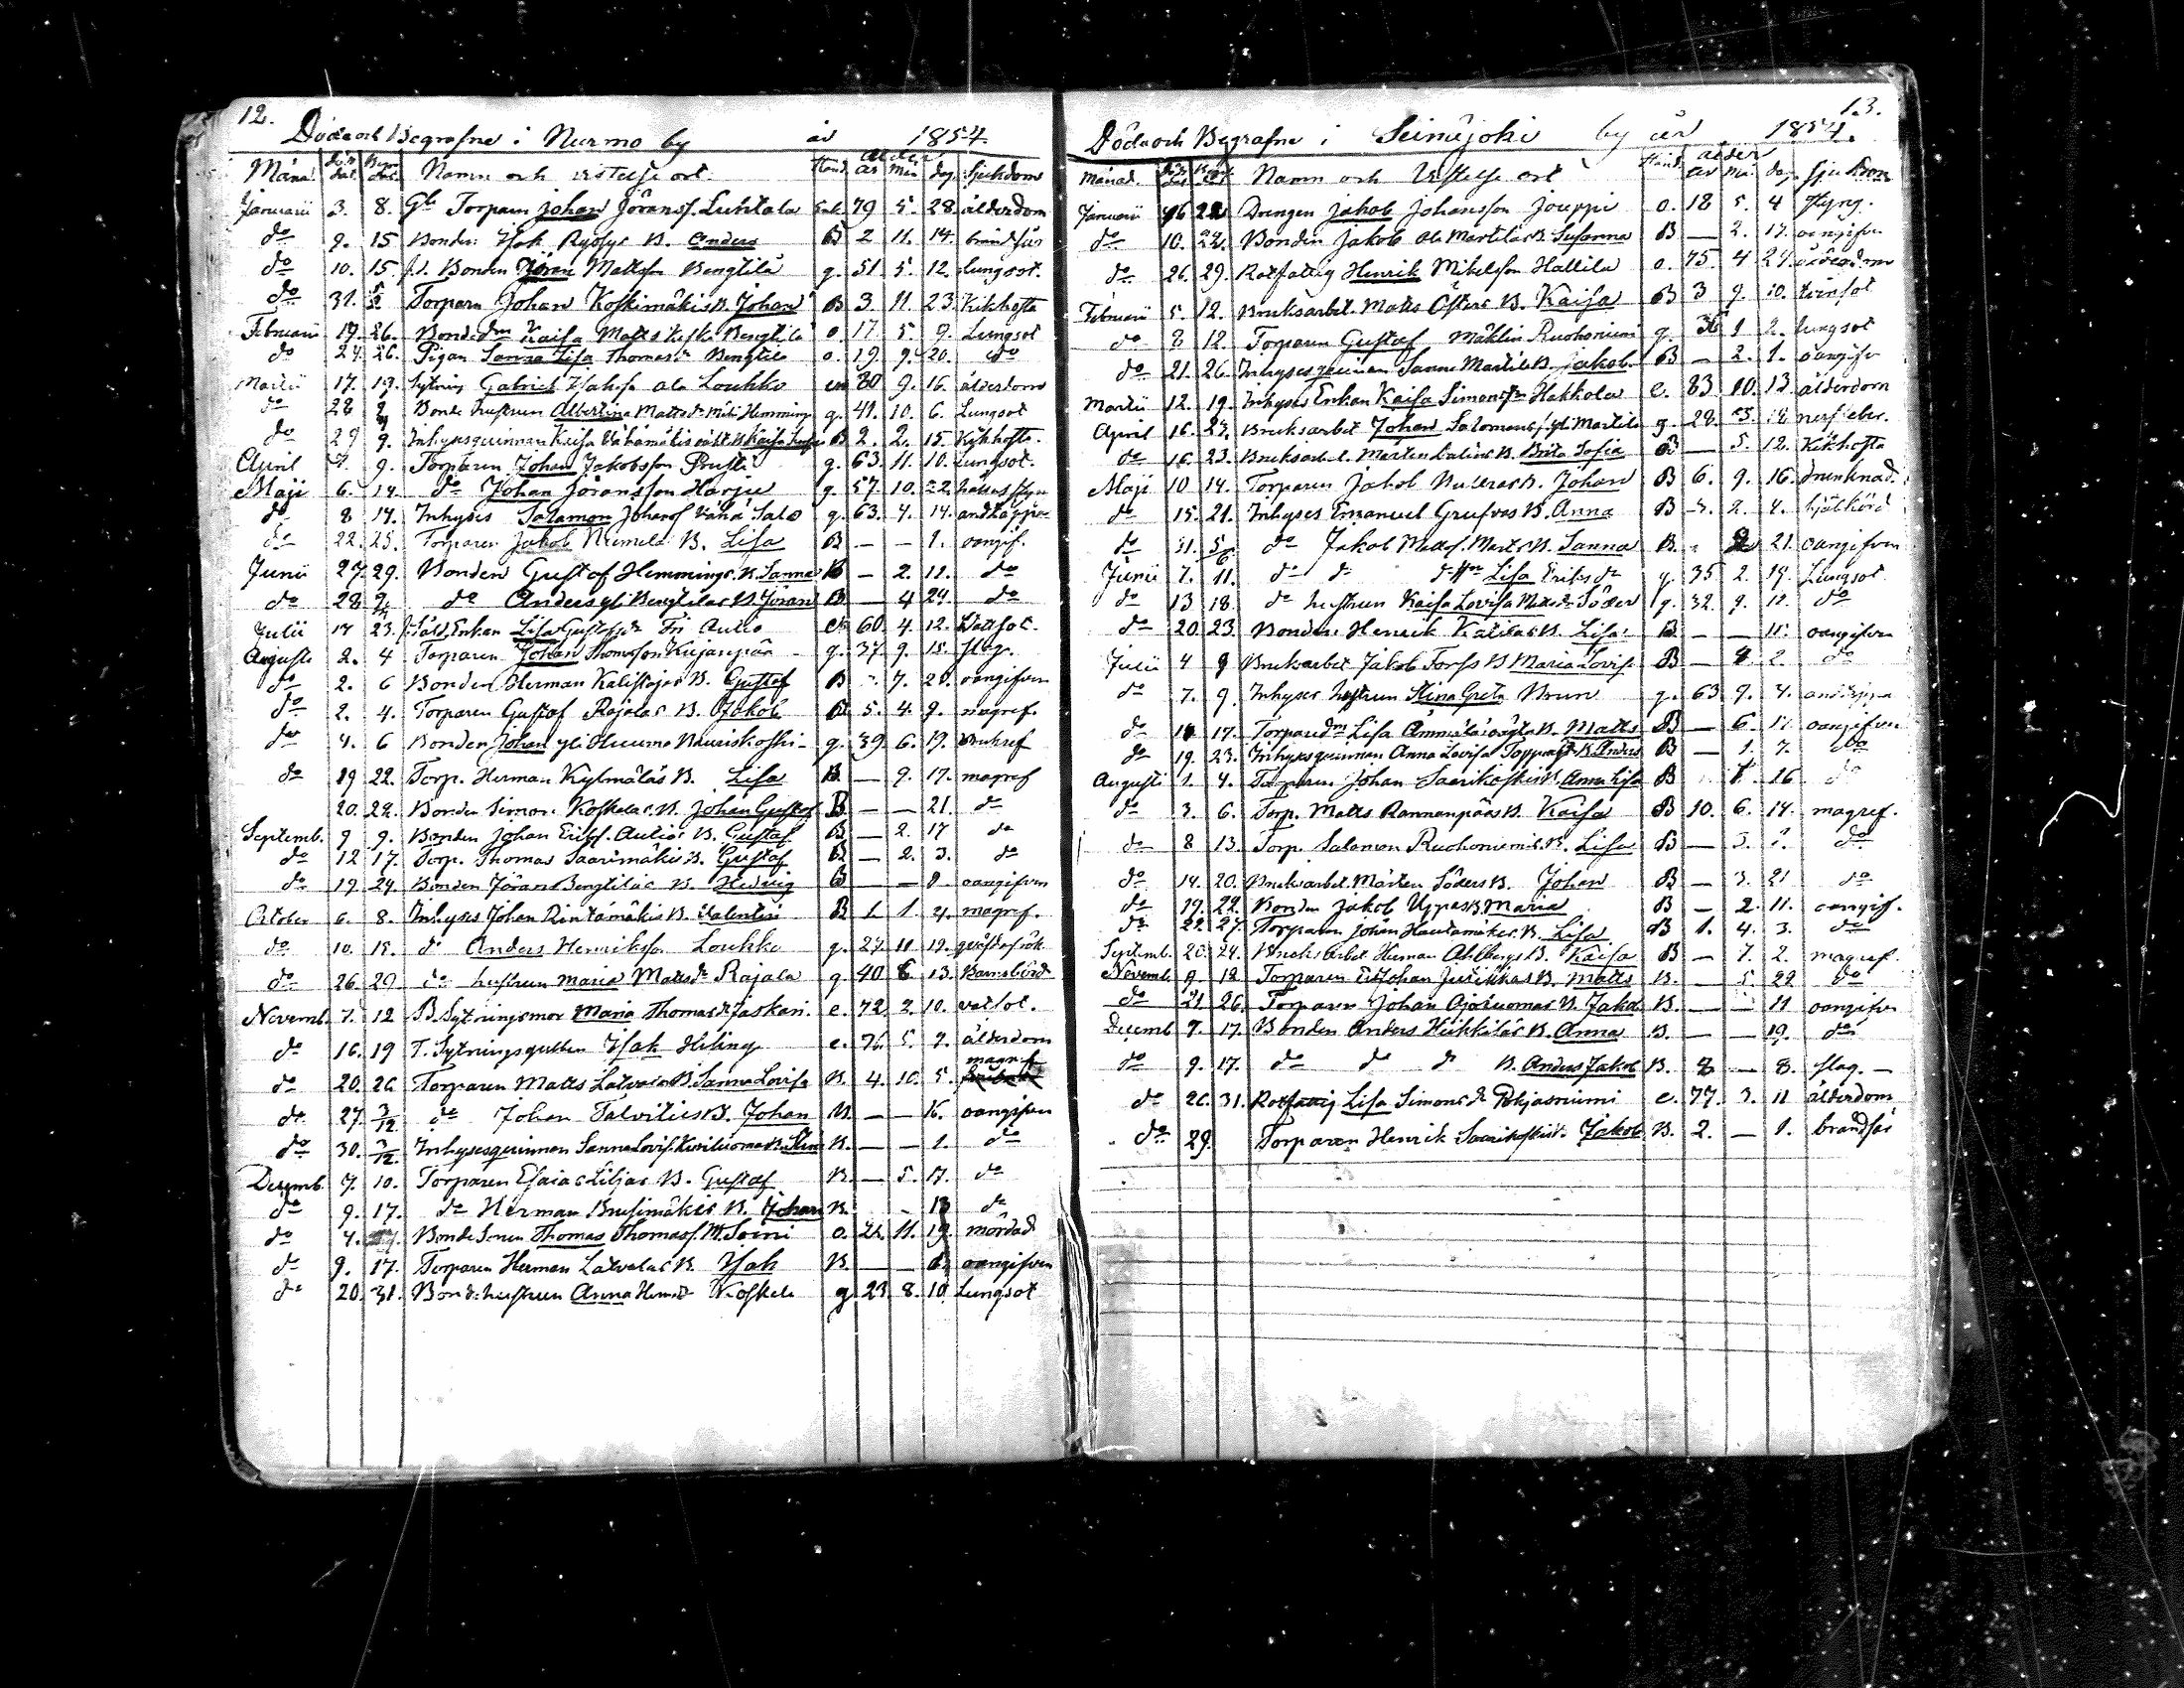 12.
Döda och Begrafne i Nurmo by år 1854.
Månad död dat. Begr. dat. Namn och vistelse ort. Stånd ålder år Mån dag Sjukdom
Januarii 3. 8. Gle Torparn Johan Jöransf. Luhtala Enk. 79 5. 28 ålderdom
do 9. 15 Bonden Isak Ryssys B. Anders B 2 11. 14. brändsår
do 10. 15. Bonden Jöran Mattsson Bengtila g. 51 5. 12. Lungsot.
do 31. 5/2 Torparn Johan Koskimäkis B. Johan B 3. 11. 23. Kikhosta
Februarii 19. 26. Bonde dm Kaisa Matts Keski Bengtila o. 17. 5. 9. Lungsot
do 24. 26. Pigan Sanna Lisa Thomasdr Bengtila o. 19. 9. 20. do
Martii 17. 19. Sytning Gabriel Isaksf. ala Louhko 80 9. 16. ålderdom
do 28 Bonde hustrun Albertina Mattsdr Hemming g. 41. 10. 6. Lungsot
do 29 9. Inhysesquinnan Kaisa B 2. 2. 15. Kikhosta.
April 7. 9. Torparen Johan Jakobsson Prusti g. 63. 11. 10. Lungsot.
Maji 6. 14. do Johan Jöransson Harju g. 57. 10. 22.
do 8 14. Inhyses Salamon Johansf Vähä Salo g. 63. 4. 14. andtäppa
do 22. 25. Torparen Jakob Niemelä B. Lisa B — — 1. oangif.
Junii 27. 29. Bonden Gustaf Hemmings B. Sanna B — 2. 11. do
do 28 do Anders yli Bengtilas B. Jöran B. — 4 24. do
Julii 17 23. Enkan Lisa Gustafsdr Aulio 60. 4. 12. Wattsot.
Augusti 2. 4 Torparen Johan Thomasson Kujanpää g. 37. 9. 15. slag.
do 2. 6 Bonden Herman Kalistajas B. Gustaf B 7. 20. oangifven
do 2. 4. Torparen Gustaf Rajalas B. Jakob B 5. 4. 9. magref.
do 4. 6 Bonden Johan yli Huumo Nauriskoski g. 39. 6. 19.
do 19 22. Torp. Herman Kylmäläs B. Lisa B. — 9. 17. magref
20. 24. Bonden Simon Koskelas B. Johan Gustaf B — — 21. do
Septemb. 9 9. Bonden Johan Eriksf. Aulios B. Gustaf B — 2. 17 do
do 12 17. Torp. Thomas Saarimäkis B. Gustaf B — 2. 3. do
do 19. 24. Bonden Jöran Bengtilas B. Hedvig B — — 8. oangifven
October 6. 8. Inhyses Johan Rintamäkis B. Valentin B 1. 1. 4. magref.
do 10. 15. do Anders Henriksson Louhko g. 27. 11 19.
do 26. 29. do hustrun Maria Mattsdr Rajala g. 40 6 13. Barnsbörd
Novemb. 7. 12 Sytningsmor Maria Thomasdr Jaskari e. 72. 2. 10. vatsot.
do 16. 19 T. Sytningsgubben Isak Hiling e. 76. 5. 9. ålderdom
do 20. 26. Torparen Matts Latvalas B. Sanna Lovisa B. 4. 10. 5. magref
do 27. 3/12 do Johan Talvities B. Johan B. — — 16. oangifven
do 30. 3/12. Inhysesquinnan Sanna Lovis. B. — — 1. do
Decemb. 7. 10. Torparen Esaias Liljas B. Gustaf B. — 5. 17. do
do 9. 17. do Herman Brusimäkis B. Johan B. 13 do
do 4. Bonde Sonen Thomas Thomasf. Soini o. 22. 11. 19. mördad
do 9. 17. Torparen Herman Latvalas B. Isak B. — — 6. oangifven
do 20. 31. Bonde hustrun Anna Koskela g 23. 8. 10. Lungsot
13.
Döda och Begrafne i Seinäjoki by år 1854.
Månad. Namn och Vistelse ort Stånd ålder år Mån dag Sjukdom
Januarii 16 22 Drengen Jakob Johansson Jouppi o. 18 5. 4 styng.
do 10. 22. Bonden Jakob ala Martilas B. Susanna B — 2. 17. oangifven
do 26. 29. Rotfattig Henrik Mikelsson Hallila o. 75. 4 24. ålderdom
Februarii 5. 12. Bruksarbet. Matts Östers B. Kaisa B 3 9. 10. tvinsot
do 8 12. Torparen Gustaf Mäklin Ruohoniemi g. 36 1 2. Lungsot
do 21. 26. Inhysesquinnan Sanna Martilas B. Jakob B — 2. 1. oangifv
Martii 12. 19. Inhyses Enkan Kaisa Simonsdr Hakkola e. 83. 10. 13 ålderdom
April 16. 27. Bruksarbet Johan Salomonsf. yli Martila g. 28. 18. nerffeber.
do 16 23. Bruksarbet. Mårten B. Brita Sofia B — 5. 12. Kikhosta
Maji 10 14. Torparen Jakob B. Johan B 6. 9. 16. drunknad.
do 15. 21. Inhyses Emanuel Grufvas B. Anna B 2. 4. ihjälkörd
do 31. 5/6 do Jakob Mattsf. B. Sanna B. 21. oangifven
Junii 7. 11. do do do Lisa Eriksdr g. 35 2. 19. Lungsot
do 13 18. do hustrun Kaisa Lovisa Mattsdr Söder g. 32. 9. 12. do
do 20. 23. Bonden Henrik B. Lisa B — — 11. oangifven
Julii 4 9 Bruksarbet Jakob Torfs B Maria Lovis. B — 2. do
do 7. 9. Inhyses hustrun Stina Greta Brun g. 63 9. 4. andtäppa
do 17. Torpare dm Lisa B. Matts B — 6. 17. oangifven
do 19. 23. Inhysesquinnan Anna Lovisa B. Anders B — 1. 7. do
Augusti 1. 4. Torparen Johan Saarikoskis B. Anna Lisa B 16 do
do 3. 6. Torp. Matts Rannanpääs B. Kaisa B 10. 6. 14. magref.
do 8 13. Torp. Salamon Ruohoniemis B. Lisa B — 3. 1. do
do 14. 20. Bruksarbet. Mårten Söders B. Johan B — 3. 21 do
do 19. 22. Bonden Jakob Uppas B. Maria B — 2. 11. oangif.
do 27. Torparen Johan Hautamäkis B. Lisa B 1. 4. 3. do
Septemb. 20. 24. Bruksarbet Herman Ahlbergs B. Kaisa B — 7. 2. magref.
Novemb 9 12 Torparen Johan B. Matts B. — 5. 22 do
do 21 26. Torparen Johan Ajoluomas B. Jakob B. — — 11 oangifven
Decemb 7. 17. Bonden Anders Heikkiläs B. Anna B. — — 19. do
do 9. 17. do do do B. Anders Jakob B. — 8. slag. —
do 26. 31. Rotfattig Lisa Simonsdr Pohjasniemi e. 77. 3. 11 ålderdom
do 29. Torparen Henrik Saarikoskis B. Jakob B. 2. — 1. brandsår